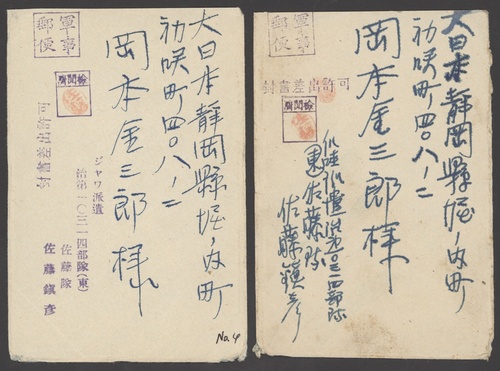 大日本静岡縣堀ノ内町
初咲町四〇八ノ二
岡本金三郎様
軍事
郵便
檢閲濟
ジャワ派遣
治第一〇三一四部隊(東)
佐藤隊
佐藤鎮彦
封書差出許可
No.4
大日本静岡縣堀ノ内町
初咲町四〇八ノ二
岡本金三郎様
軍事
郵便
封書差出許可
檢閲濟
〇三一四部隊
東佐藤隊
佐藤鎮彦